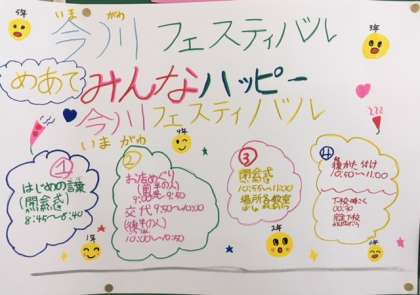 いま がわ
今川 フェスティバル
5年
3年
めあて みんなハッピー
今川 フェスティバル
いま がわ
4年
①
はじめの言葉
(開会式)
8:45~8:40
②
お店めぐり
(前半の人)
交代 9:50~10:00
(後半の人)
10:00~10:50
③
閉会式
10:55~11:00
場所各教室
④
10:50~11:00
1年
2年